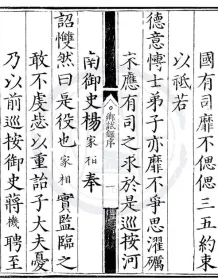 國有司靡不偲偲三五約束
以祗若
德意博士弟子亦靡不爭思濯礪
丕應有司之求於是巡按河
鄉試錄序
一
南御史楊家相奉
詔愯然曰是役也家相實監臨之
敢不虔毖以重詒子大夫憂
乃以前巡按御史蔣機聘至